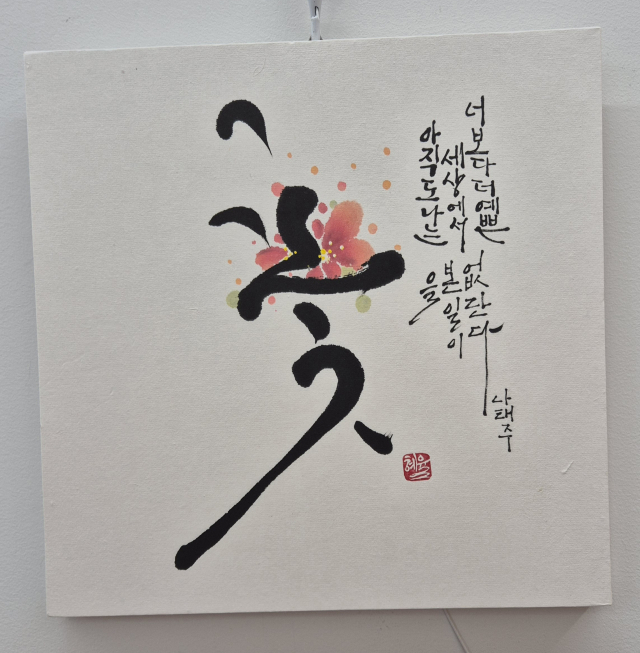 아직도 나는
세상에서
너보다 더 예쁜
꽃
을
본 일이
없단다
나태주